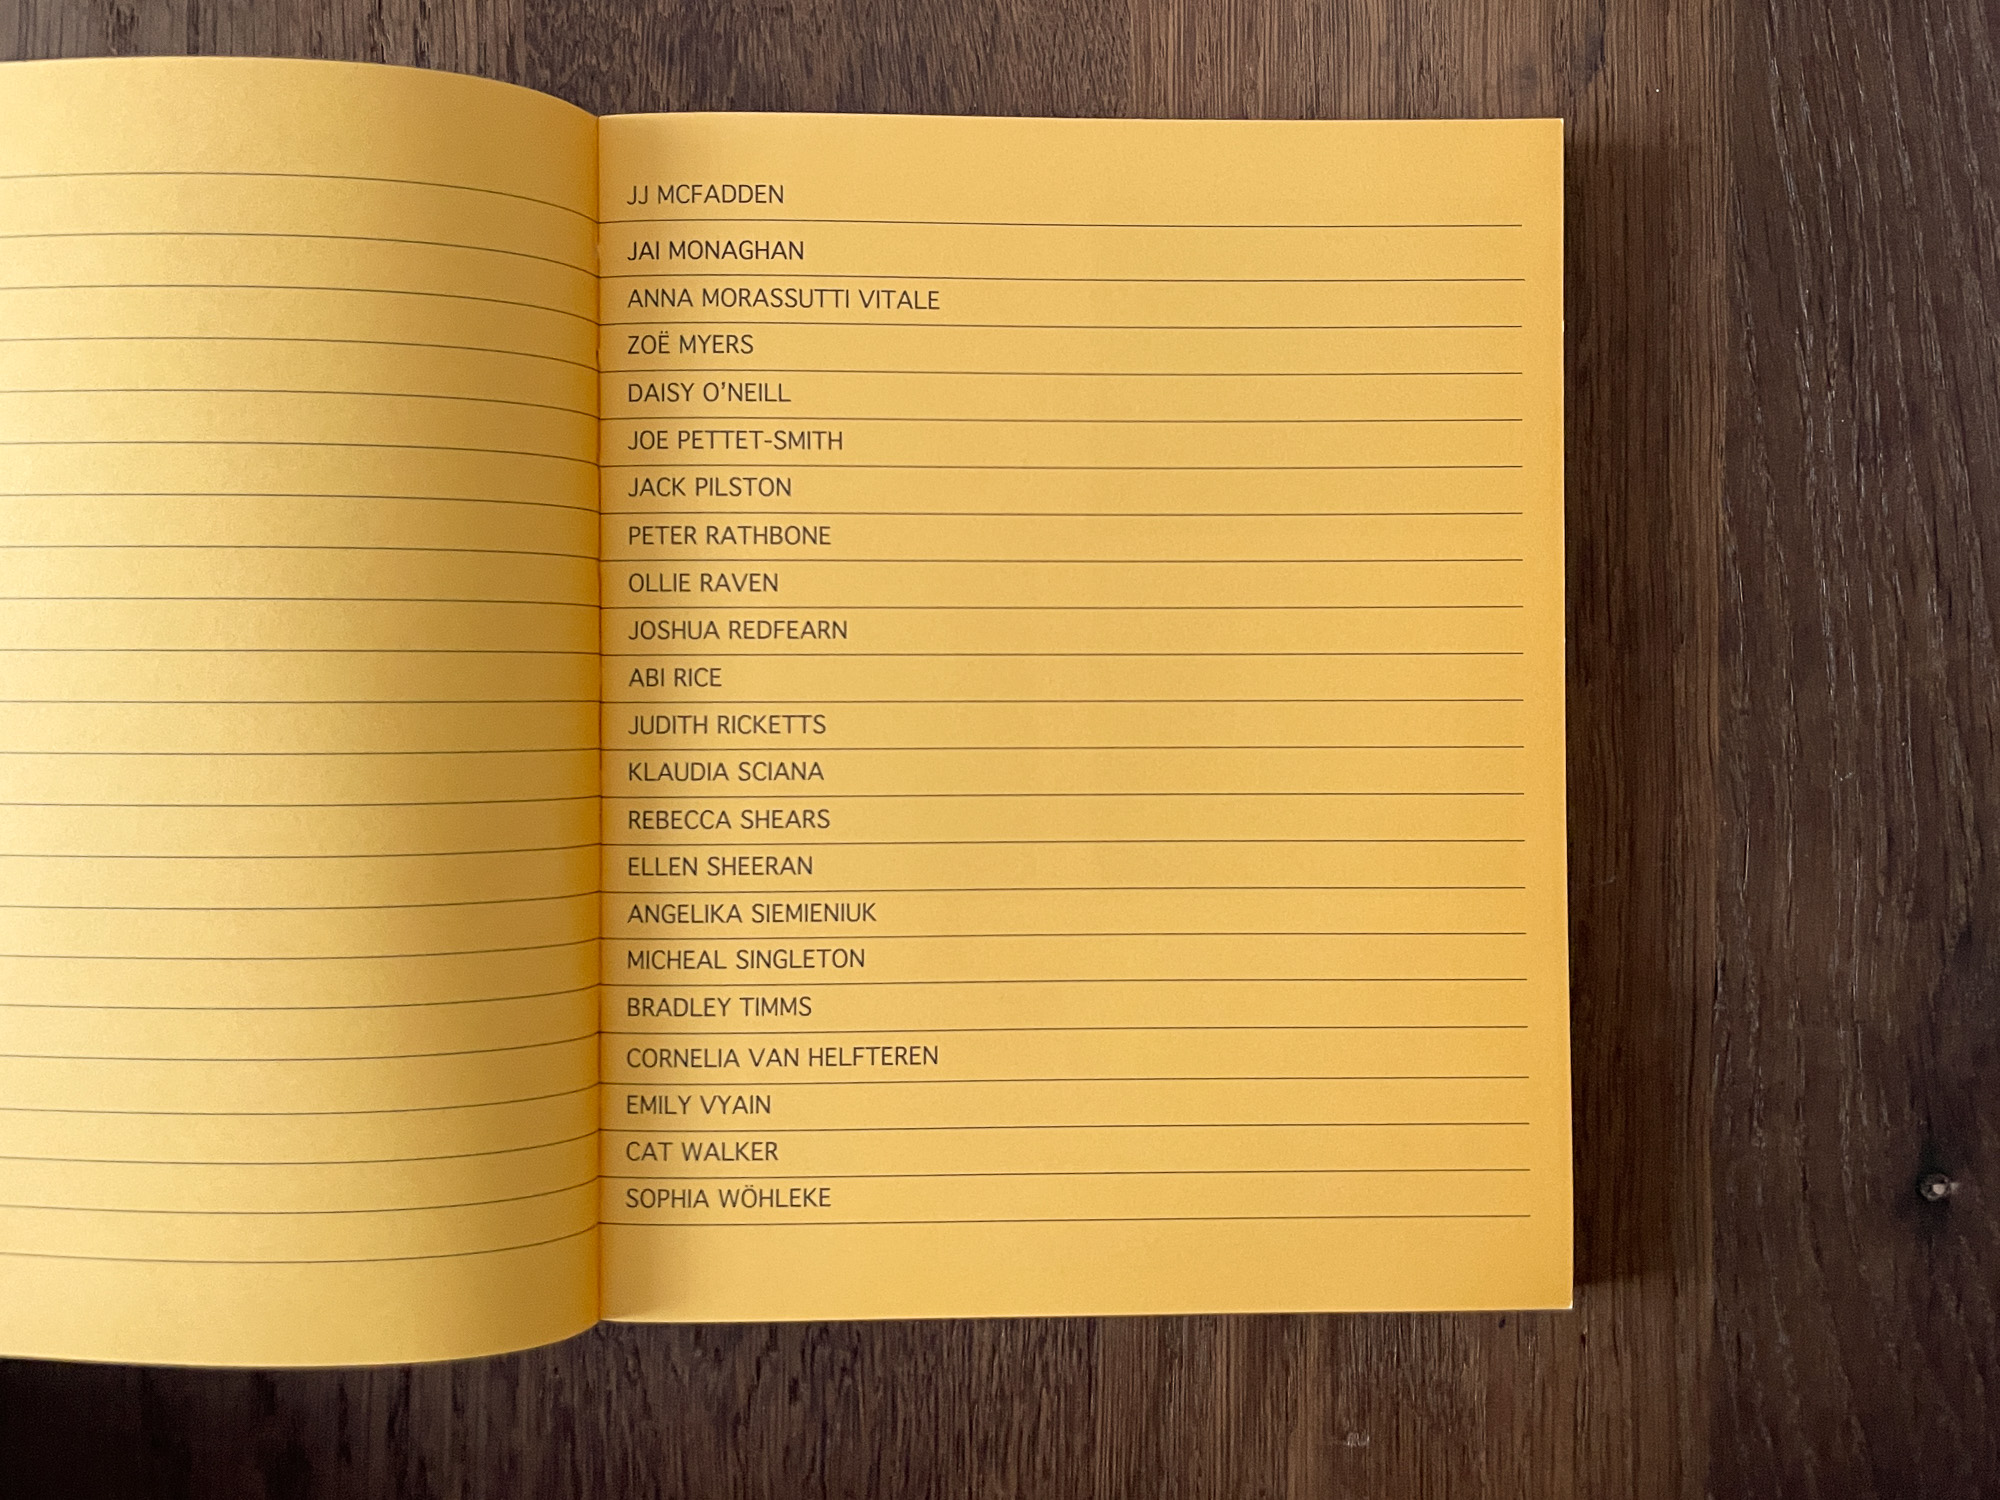 JJ MCFADDEN
JAI MONAGHAN
ANNA MORASSUTTI VITALE
ZOË MYERS
DAISY O’NEILL
JOE PETTET-SMITH
JACK PILSTON
PETER RATHBONE
OLLIE RAVEN
JOSHUA REDFEARN
ABI RICE
JUDITH RICKETTS
KLAUDIA SCIANA
REBECCA SHEARS
ELLEN SHEERAN
ANGELIKA SIEMIENIUK
MICHEAL SINGLETON
BRADLEY TIMMS
CORNELIA VAN HELFTEREN
EMILY VYAIN
CAT WALKER
SOPHIA WÖHLEKE